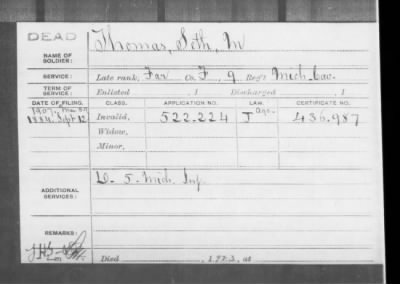 DEAD
Thomas, Seth, M
NAME OF SOLDIER:
SERVICE: Late rank, Far Co. F, 9 Reg't Mich. Cav.
TERM OF SERVICE: Enlisted , 1 Discharged , 1
DATE OF FILING. CLASS. APPLICATION NO. LAW. CERTIFICATE NO.
1907
1884 Sept 12 Invalid, 522.224 J 436.987
Widow,
Minor,
ADDITIONAL SERVICES: D- 5- Mich. Inf
REMARKS:
Died , 1 , at